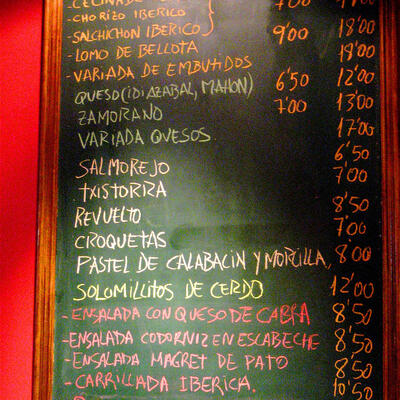 - CECINA DE
- CHORIZO IBERICO
- SALCHICHON IBERICO 9'00 18'00
- LOMO DE BELLOTA 18'00
- VARIADA DE EMBUTIDOS
QUESO (IDIAZABAL, MAHON) 6'50 12'00
ZAMORANO 7'00 13'00
VARIADA QUESOS 17'00
SALMOREJO 6'50
TXISTORRA 7'00
REVUELTO 8'50
CROQUETAS 7'00
PASTEL DE CALABACIN Y MORCILLA, 8'00
SOLOMILLITOS DE CERDO 12'00
- ENSALADA CON QUESO DE CABRA 8'50
- ENSALADA CODORNIZ EN ESCABECHE 8'50
- ENSALADA MAGRET DE PATO 8'50
- CARRILLADA IBERICA. 10'50